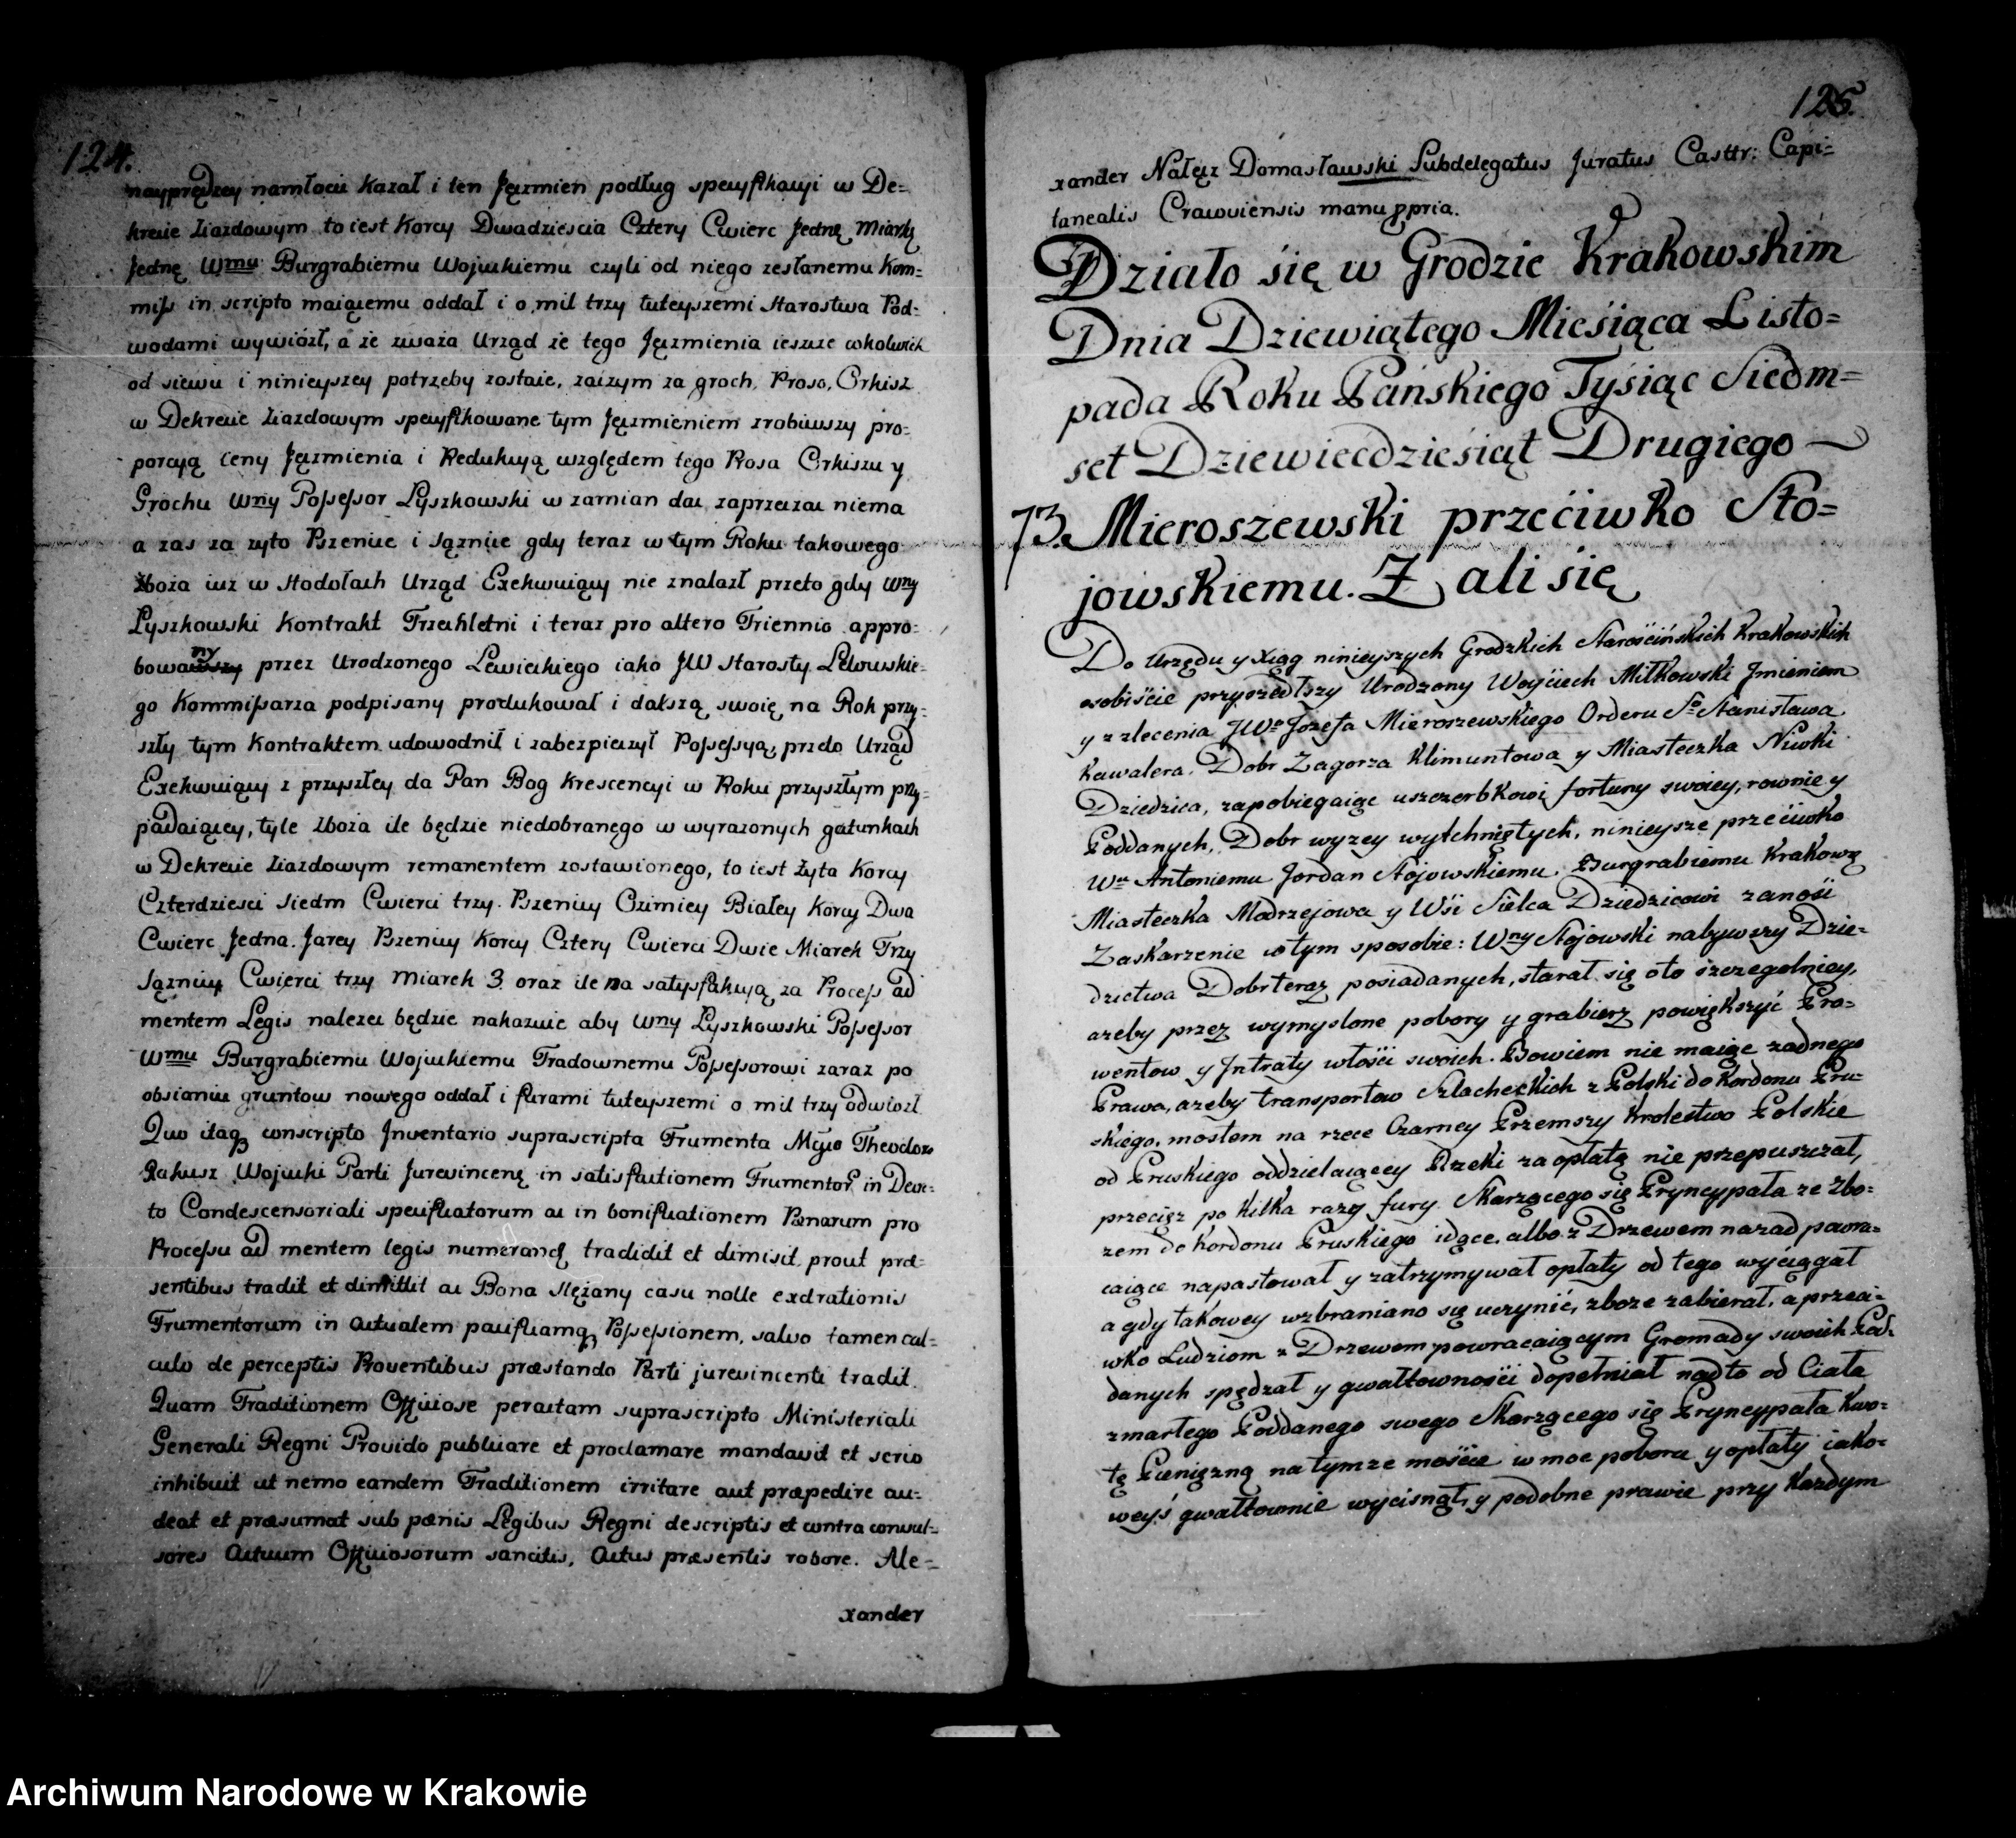 124.
nayprędzey namłocić kazał i ten Jęczmień podług specyfikacyi w De=
krecie ziazdowym to iest Korcy Dwadziescia Cztery Cwierc Jednę Miarkę
Jednę Wmu Burgrabiemu Woјuckiemu czyli od niego zesłanemu Kom=
miss in scripto maiącemu oddał i o mil trzy tuteyszemi Starostwa Pod=
wodami wywiózł, a że uważa Urząd ze tego Jęczmienia ieszcze cokolwiek
od siewu i ninieyszey potrzeby zostaie, zaczym za groch, Proso, Orkisz
w Dekrecie ziazdowym specyfikowane tym Jęczmieniem zrobiwszy pro=
porcyą ceny Jęczmienia i Redukcyą względem tego Prosa Orkiszu y
Grochu Wny Possessor Łyszkowski w zamian dac zaprzeczac niema
a zas za zyto Pszenice i Jęznice gdy teraz w tym Roku takowego
zboża iuz w Stodołach Urząd Exekwuiący nie znalazł przeto gdy Wny
Łyszkowski Kontrakt Trzechletni i teraz pro altero Triennio appro=
bowany przez Urodzonego Lewickiego iako JW Starosty Lelowskie=
go Kommissarza podpisany produkował i dalszą swoię na Rok przy=
szły tym Kontraktem udowodnił i zabezpieczył Possessyą, przeto Urząd
Exekwuiący z przyszłey da Pan Bog Krescencyi w Roku przyszłym przy=
padaiącey, tyle zboża ile będzie niedobranego w wyrazonych gatunkach
w Dekrecie ziazdowym remanentem zostawionego, to iest Żyta Korcy
Czterdziesci Siedm Cwierci trzy. Pszenicy Ozimiey Białey Korcy Dwa
Cwierc Jedna. Jarey Pszenicy Korcy Cztery Cwierci Dwie Miarek Trzy
Jęznicy Cwierci trzy Miarek 3. oraz ile na satysfakcyą za Process ad
mentem Legis nalezec będzie nakazuie aby Wny Łyszkowski Possessor
Wmu Burgrabiemu Wojuckiemu Tradownemu Possessorowi zaraz po
obsianiu gruntow nowego oddał i furami tuteyszemi o mil trzy odwiozł.
Quo itaq conscripto Inventario suprascripta Frumenta Mgco Theodoro
Rakusz Wojucki Parti Jurevincenę in satisfactionem Frumentor in Decre=
to Condescensoriali specificatorum ac in bonificationem Pænarum pro
Processu ad mentem legis numerand tradidit et dimisit prout præ=
sentibus tradit et dimittit ac Bona Slęzany casu nolle extrationis
Frumentorum in actualem pacificamq Possessionem, salvo tamen cal=
culo de perceptis Proventibus præstando Parti jurevincenti tradit.
Quam Traditionem Officiose peractam suprascripto Ministeriali
Generali Regni Provido publicare et proclamare mandavit et serio
inhibuit ut nemo eandem Traditionem irritare aut præpedire au=
deat et præsumat sub pænis Legibus Regni descriptis et contra convul=
sores Actuum Officiosorum sancitis, Actus præsentis robore. Ale=
xander
125.
xander Nałęcz Domasławski Subdelegatus Juratus Casttr: Capi=
tanealis Cracoviensis manu ppria.
Działo się w Grodzie Krakowskim
Dnia Dziewiątego Miesiąca Listo=
pada Roku Pańskiego Tysiąc Siedm=
set Dziewiećdziesiąt Drugiego
73. Mieroszewski przećiwko Sto=
jowskiemu. Zali się
Do Urzędu y Xiąg ninieyszych Grodzkich Starościńskich Krakowskich
osobiście przyszedłszy Urodzony Woyciech Miłkowski Jmieniem
y z zlecenia JWo Jozefa Mieroszewskiego Orderu So Stanisława
Kawalera, Dobr Zagorza Klimuntowa y Miasteczka Niwki
Dziedzica, zapobiegaiąc uszczerbkowi fortuny swoiey, rownie y
Poddanych, Dobr wyzey wytchniętych, ninieysze przećiwko
Wu Antoniemu Jordan Stojowskiemu Burgrabiemu Krakowę
Miasteczka Modrzejowa y Wśi Sielca Dziedzicowi zanośi
Zaskarzenie w tym sposobie: Wny Stojowski nabywszy Dzie=
dzictwa Dobr teraz posiadanych, starał się oto szczegolniey,
azeby przez wymyslone pobory y grabierz powiększyć Pro=
wentow y Jntraty włośći swoich. Bowiem nie maiąc zadnego
Prawa, azeby transportow Szlacheckich z Polski do Kordonu Pru=
skiego, mostem na rzece Czarney Przemszy Krolestwo Polskie
od Pruskiego oddzielaiącey Rzeki za opłatą nie przepuszczał,
przecięz po kilka razy fury Skarzącego się Pryncypała ze Zbo=
zem do Kordonu Pruskiego idące, albo z Drzewem nazad powra=
caiące napastował y zatrzymywał opłaty od tego wyćiągał
a gdy takowey wzbraniano się uczynić, zboze zabierał, a przeci=
wko Ludziom z Drzewem powracaiącym Gromady swoich Pod=
danych spędzał y gwałtownośći dopełniał nadto od Ciała
zmarłego Poddanego swego Skarzącego się Pryncypała Kwo=
tę Pienięzną na tymze mośćie w moc poboru y opłaty iako=
weyś gwałtownie wycisnął, y podobne prawie przy kazdym
Archiwum Narodowe w Krakowie